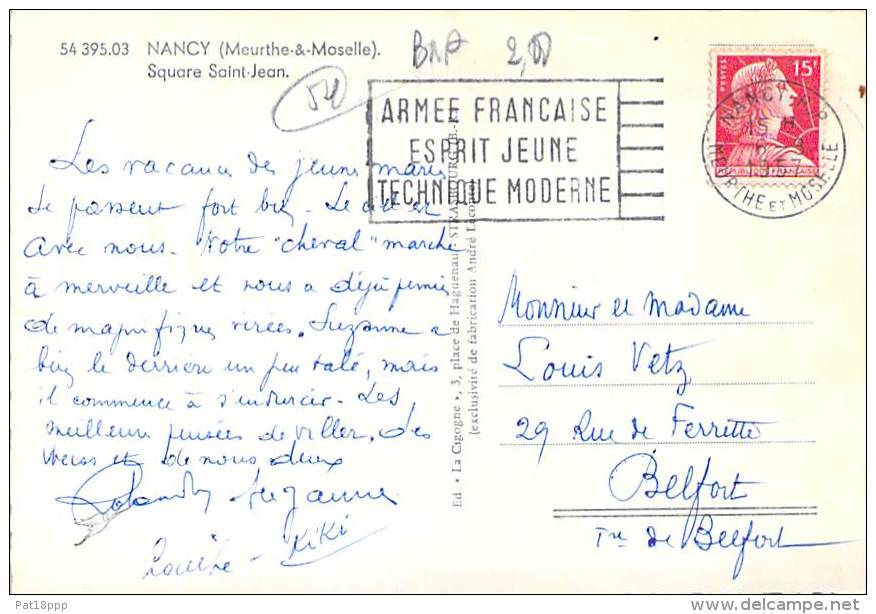 54 395.03 NANCY (Meurthe-&-Moselle).
Square Saint-Jean.
BNP 2,00
54
ARMEE FRANCAISE
ESPRIT JEUNE
TECHNIQUE MODERNE
POSTES 15F
REPUBLIQUE FRANCAISE
NANCY R.P
15 H
MEURTHE ET MOSELLE
Les vacances des jeunes mariés
se passent fort bien - Le soleil est
avec nous. Votre "cheval" marche
à merveille et nous a déjà permis
de magnifiques virées. Suzanne a
bien le derrière un peu talé, mais
il commence à s'endurcir. Les
meilleures pensées de Villers, des
et de nous deux
Suzanne
KiKi
Ed. « La Cigogne », 3, place de Haguenau, STRASBOURG
(exclusivité de fabrication André Leconte)
Monsieur et Madame
Louis Vetz
29 Rue de Ferrette
Belfort
Tre de Belfort
Pat18ppp
delcampe.net